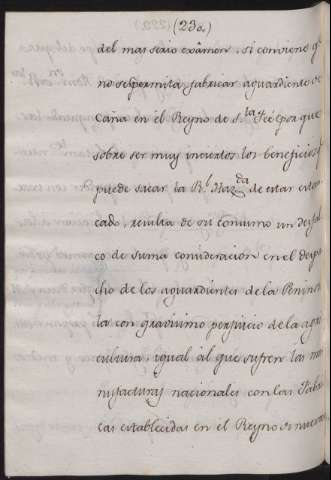 (230.)
del mas serio exâmen, si conviene qᵉ
no se permita fabricar aguardiente de
Caña en el Reyno de S.ᵗᵃ Feé por que
sobre ser muy inciertos los beneficios qᵉ
puede sacar la R.ˡ Haz.ᵈᵃ de estar estan
cado, resulta de su consumo un desfal
co de suma consideracion en el Despa
cho de los aguardientes de la Peninsu
la con gravisimo perjuicio de la agri
cultura, igual al que sufren las ma
nufacturas nacionales con las Fabri
cas establecidas en el Reyno de nueva